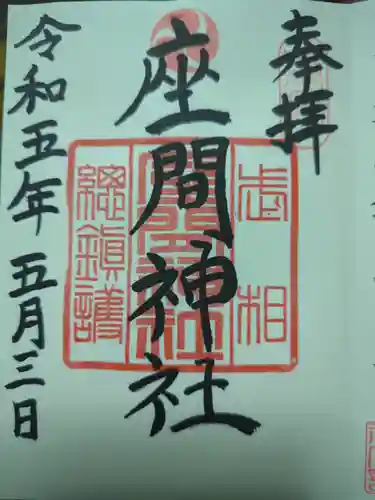 奉拝
座間神社
令和五年 五月三日
相
總鎮護